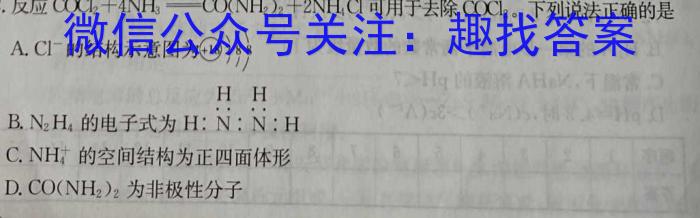 反应 COCl₂+4NH₃══CO(NH₂)₂+2NH₄Cl 可用于去除 COCl₂。下列说法正确的是
微信公众号关注：趣找答案
A. Cl⁻ 的结构示意图为
H H
B. N₂H₄ 的电子式为 H:N:N:H
C. NH₄⁺ 的空间结构为正四面体形
D. CO(NH₂)₂ 为非极性分子